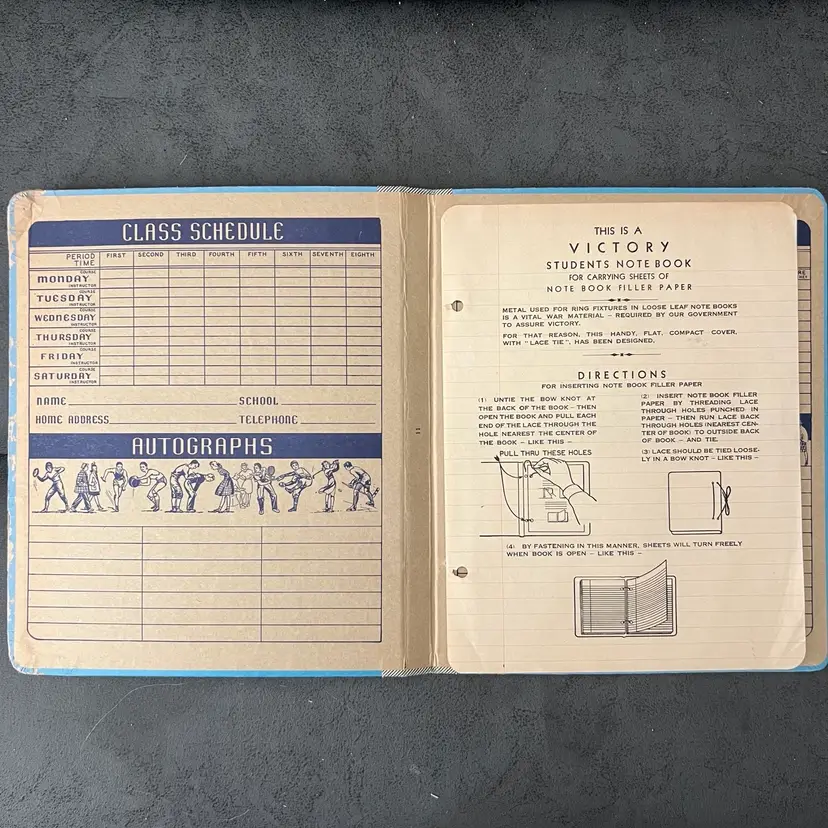 CLASS SCHEDULE
PERIOD FIRST SECOND THIRD FOURTH FIFTH SIXTH SEVENTH EIGHTH
TIME
COURSE
MONDAY
INSTRUCTOR
COURSE
TUESDAY
INSTRUCTOR
COURSE
WEDNESDAY
INSTRUCTOR
COURSE
THURSDAY
INSTRUCTOR
COURSE
FRIDAY
INSTRUCTOR
COURSE
SATURDAY
INSTRUCTOR
NAME SCHOOL
HOME ADDRESS TELEPHONE
AUTOGRAPHS
THIS IS A
VICTORY
STUDENTS NOTE BOOK
FOR CARRYING SHEETS OF
NOTE BOOK FILLER PAPER
METAL USED FOR RING FIXTURES IN LOOSE LEAF NOTE BOOKS
IS A VITAL WAR MATERIAL – REQUIRED BY OUR GOVERNMENT
TO ASSURE VICTORY.
FOR THAT REASON, THIS HANDY, FLAT, COMPACT COVER,
WITH "LACE TIE", HAS BEEN DESIGNED.
DIRECTIONS
FOR INSERTING NOTE BOOK FILLER PAPER
(1) UNTIE THE BOW KNOT AT
THE BACK OF THE BOOK – THEN
OPEN THE BOOK AND PULL EACH
END OF THE LACE THROUGH THE
HOLE NEAREST THE CENTER OF
THE BOOK – LIKE THIS –
PULL THRU THESE HOLES
(2) INSERT NOTE BOOK FILLER
PAPER BY THREADING LACE
THROUGH HOLES PUNCHED IN
PAPER – THEN RUN LACE BACK
THROUGH HOLES (NEAREST CEN-
TER OF BOOK) TO OUTSIDE BACK
OF BOOK – AND TIE.
(3) LACE SHOULD BE TIED LOOSE-
LY IN A BOW KNOT – LIKE THIS –
(4) BY FASTENING IN THIS MANNER, SHEETS WILL TURN FREELY
WHEN BOOK IS OPEN – LIKE THIS –